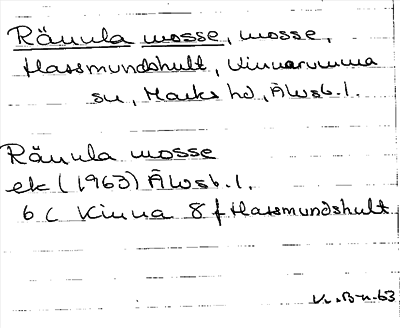 Rännla mosse, mosse,
Hassmundshult, Kinnarumma
sn, Marks hd, Älvsb. l.
Rännla mosse
ek (1963) Älvsb. l.
6 C Kinna 8 f Hassmundshult